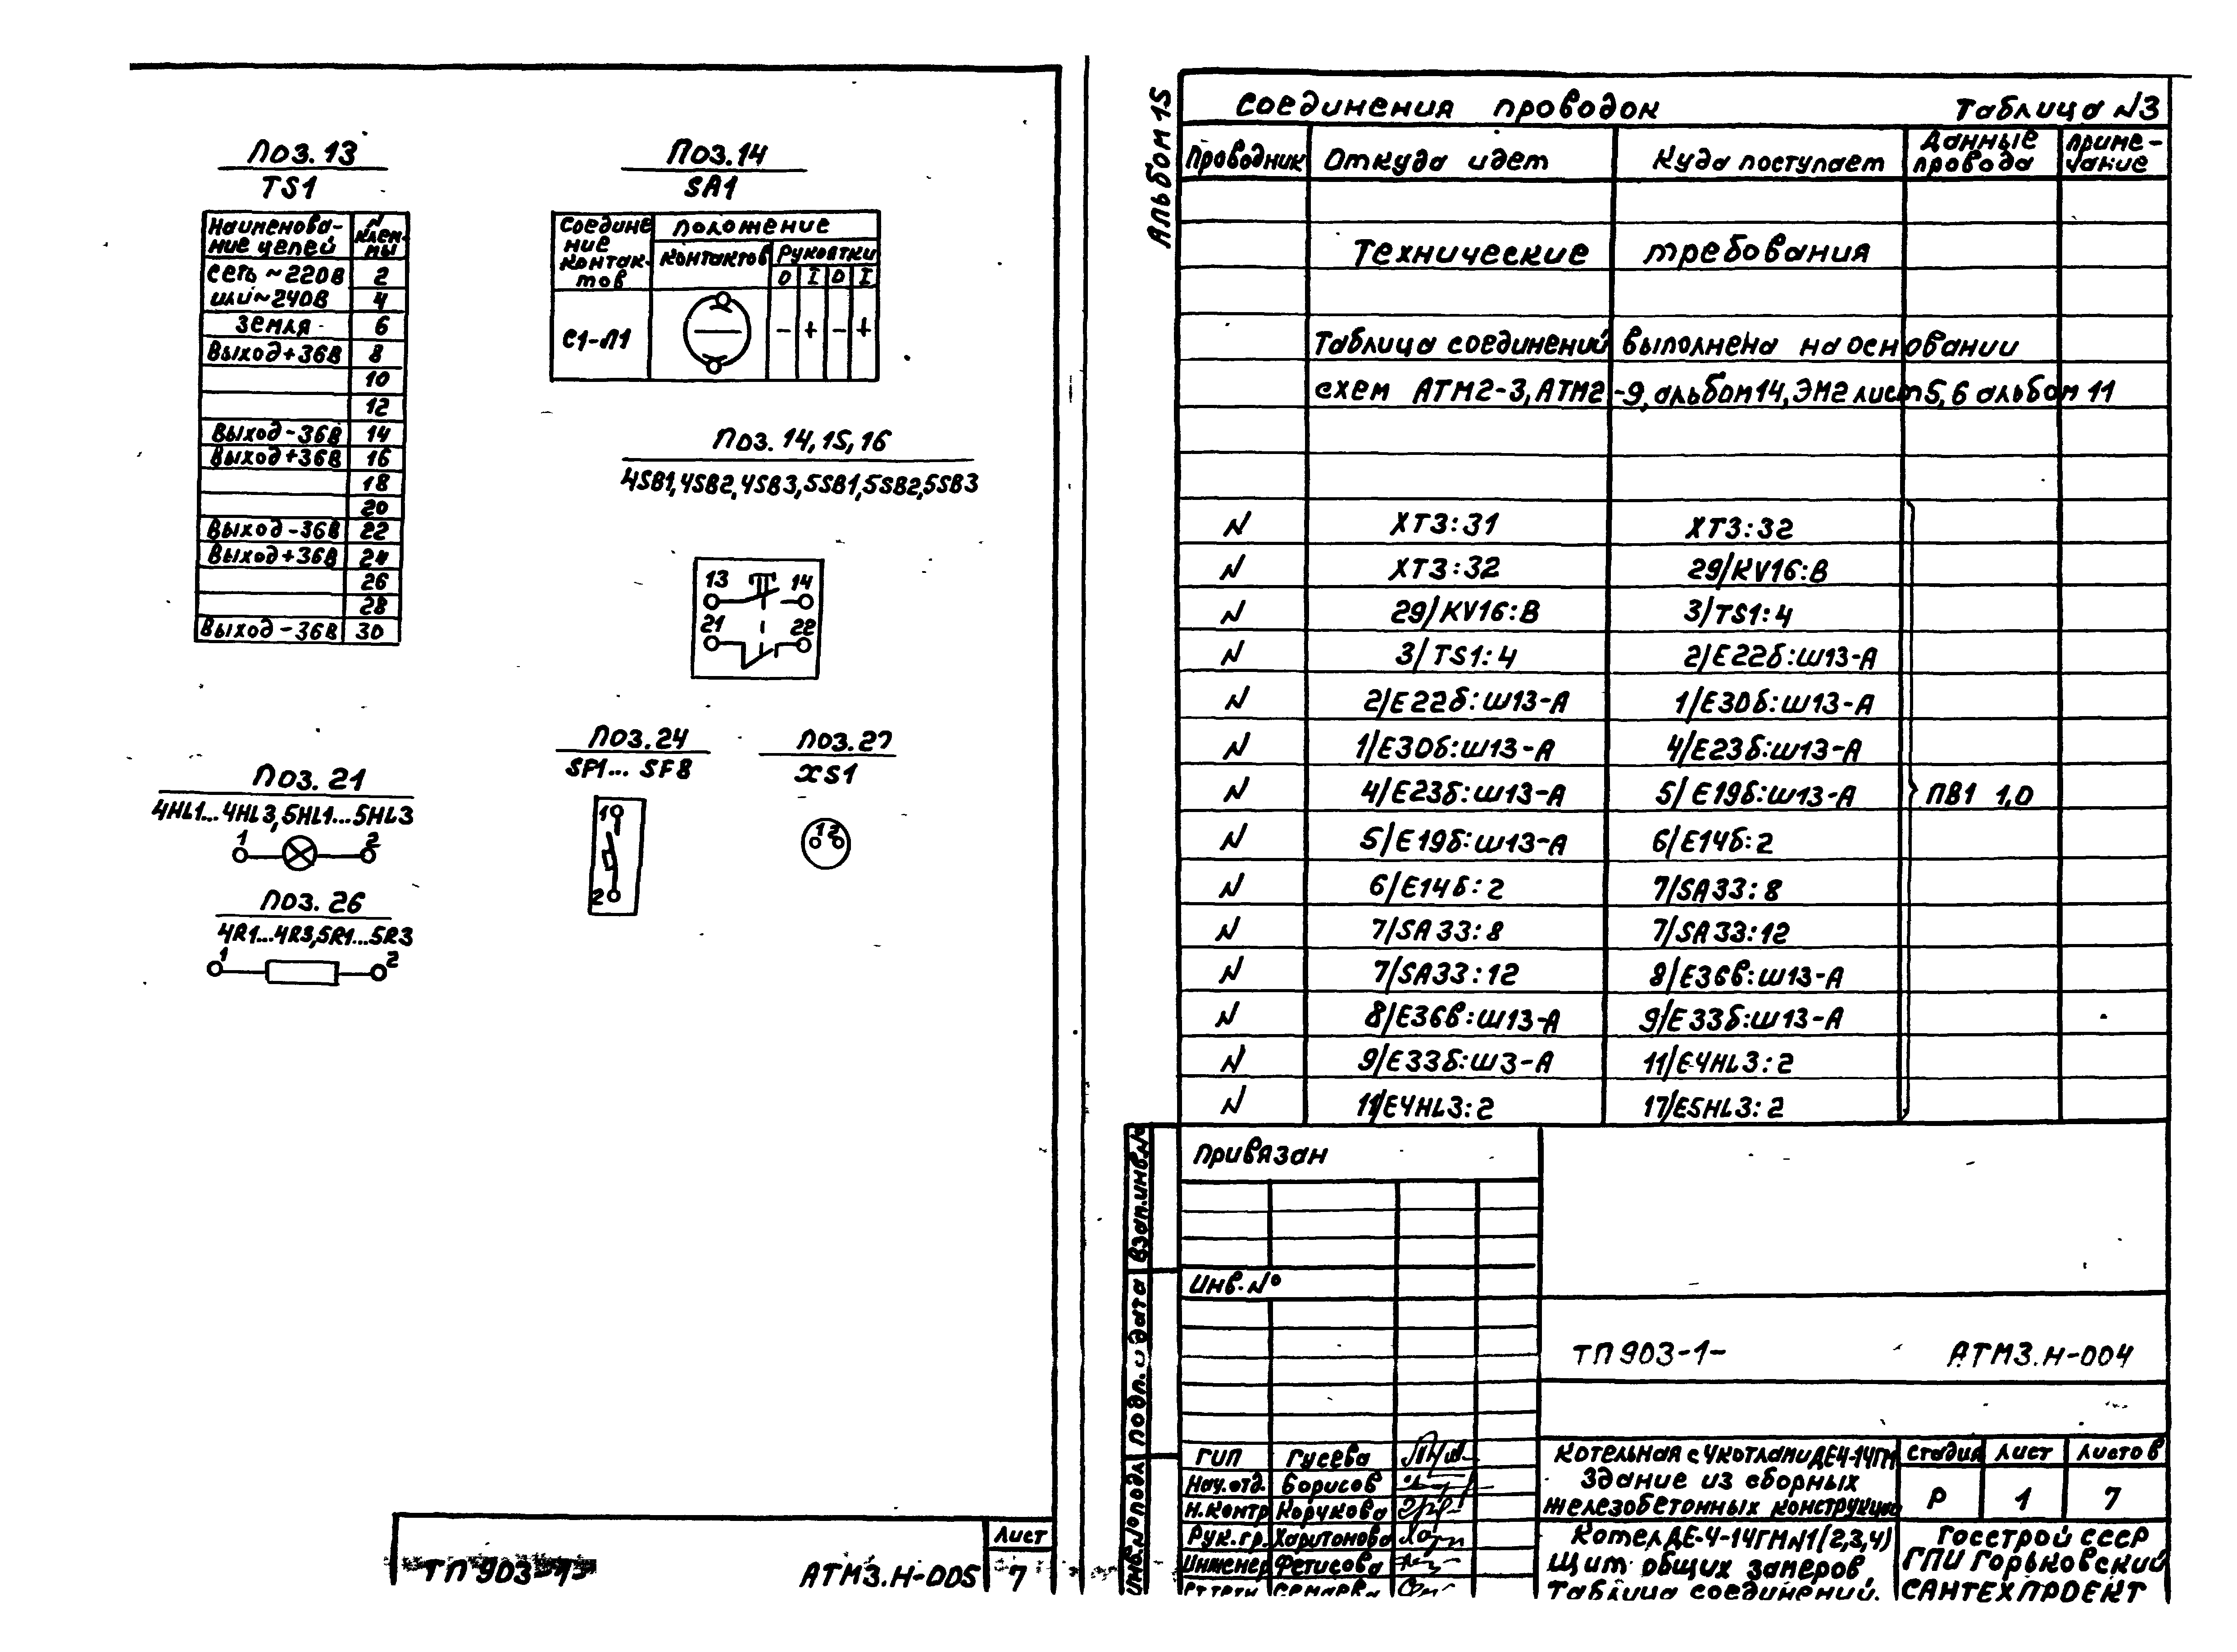 Поз. 13
TS1
Наименова-
ние цепей
N
клем-
мы
сеть ~220В 2
или ~240В 4
Земля 6
Выход+36В 8
10
12
Выход-36В 14
Выход+36В 16
18
20
Выход-36В 22
Выход+36В 24
26
28
Выход-36В 30
Поз.14
SA1
Соедине
ние
контак-
тов
положение
контактов
Рукоятки
0 I 0 I
С1-Л1 - + - +
Поз. 14,15,16
4SB1,4SB2,4SB3,5SB1,5SB2,5SB3
13 14
21 22
Поз. 21
4HL1...4HL3,5HL1...5HL3
1 2
Поз. 26
4R1...4R3,5R1...5R3
1 2
Поз.24
SF1... SF8
1
2
Поз.27
XS1
1 2
ТП 903-1-
АТМ3.Н-005
Лист
7
Альбом 15
Соединения проводок Таблица N3
Проводник
Откуда идет
Куда поступает
Данные
провода
приме-
чание
Технические требования
Таблица соединений выполнена на основании
схем АТМ2-3, АТМ2-9, альбом 14, ЭМ2 лист 5, 6 альбом 11
N XT3:31 XT3:32
N XT3:32 29/KV16:В
N 29/KV16:В 3/TS1:4
N 3/TS1:4 2/Е22б:ш13-А
N 2/Е22б:ш13-А 1/Е30б:ш13-А
N 1/Е30б:ш13-А 4/Е23б:ш13-А
N 4/Е23б:ш13-А 5/Е19б:ш13-А
ПВ1 1,0
N 5/Е19б:ш13-А 6/Е14б:2
N 6/Е14б:2 7/SA33:8
N 7/SA33:8 7/SA33:12
N 7/SA33:12 8/Е36в:ш13-А
N 8/Е36в:ш13-А 9/Е33б:ш13-А
N 9/Е33б:ш3-А 11/Е4HL3:2
N 11/Е4HL3:2 17/Е5HL3:2
Взам.инв.N
Подп. и дата
Инв.N°подл
Привязан
Инв.N°
ТП 903-1- АТМ3.Н-004
ГИП Гусева
Нач.отд. Борисов
Н.контр Корукова
Рук.гр. Харитонова
Инженер Фетисова
Котельная с 4 котлами ДЕ4-14ГМ
Здание из сборных
железобетонных конструкций
Стадия Лист Листов
Р 1 7
Котел ДЕ-4-14ГМ N1(2,3,4)
Щит общих замеров
Таблица соединений.
Госстрой СССР
ГПИ Горьковский
САНТЕХПРОЕКТ